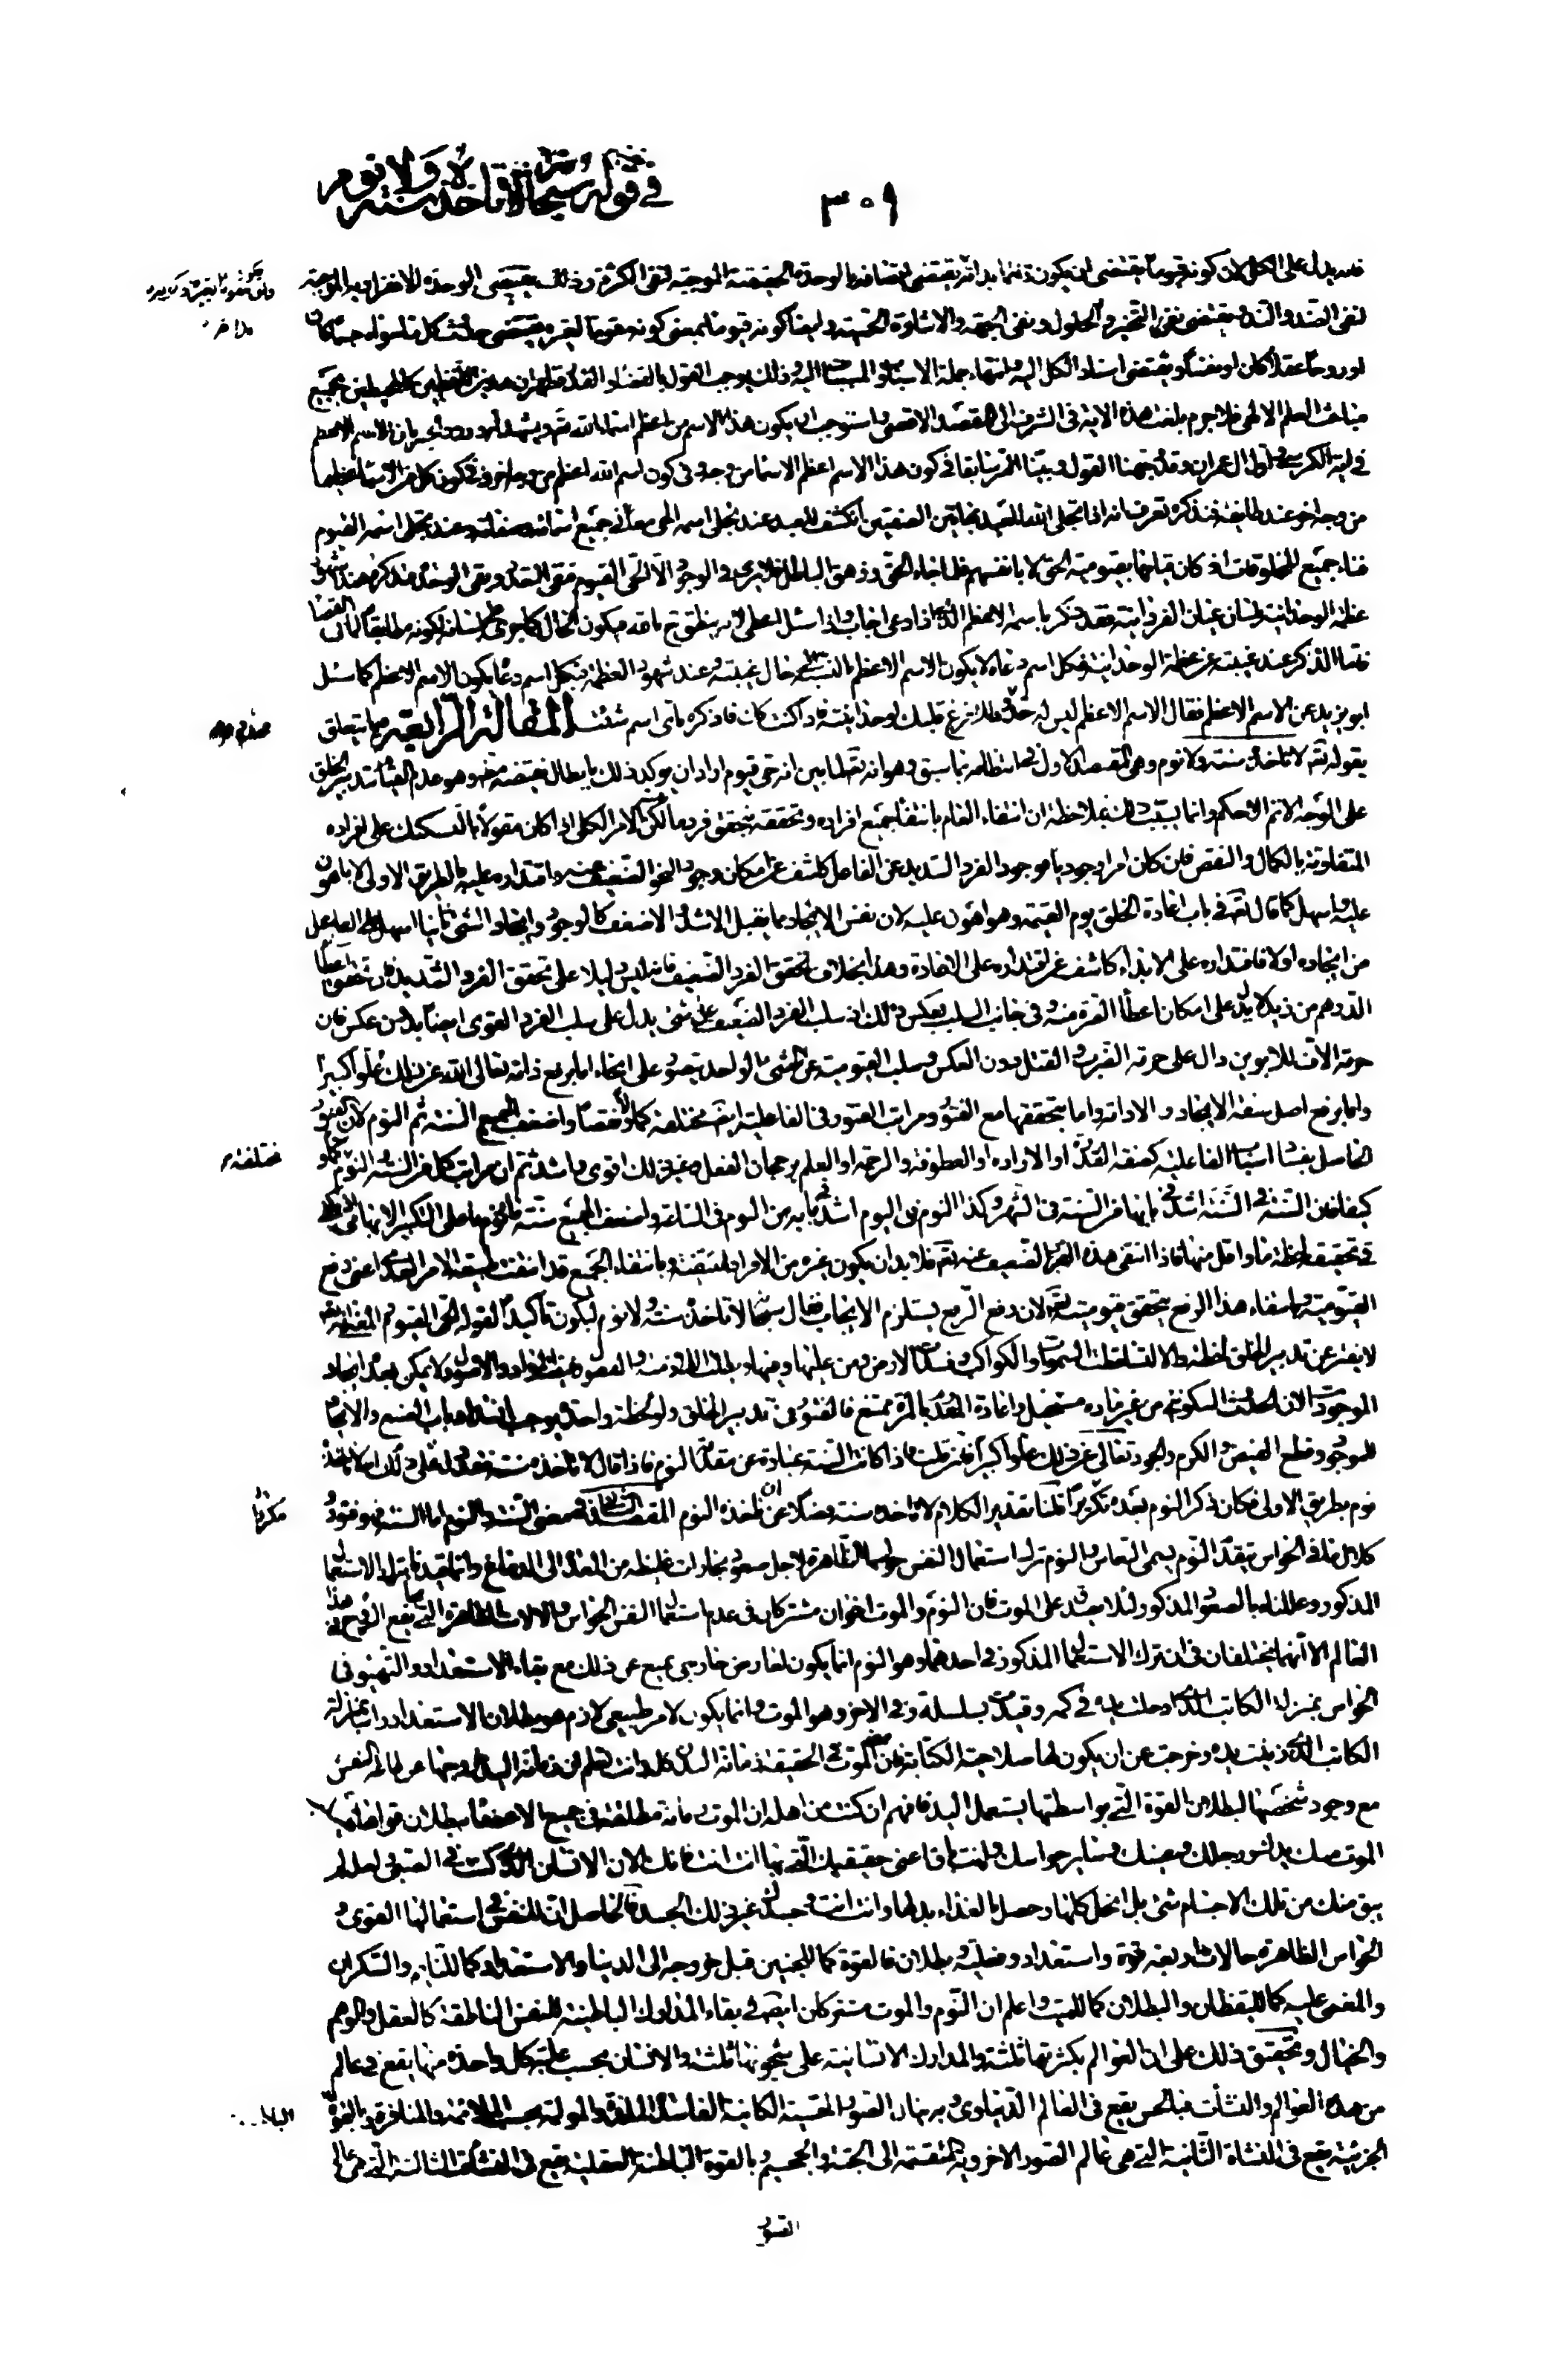 في قوله سبحانه لا تأخذه سنة ولا نوم
٣٠٩
يدل على الكل لان كونه قيوما يقتضي ان يكون قائما بذاته يقتضي اتصافه بالوحدة الحقيقية الموجبة لنفي الكثرة وذلك يقتضي الوحدة
لنفي الضد والند ويقتضي نفي التحيز والحلول ونفي الجهة والاشارة الحسية وايضا كونه قيوما بمعنى كونه مقوما لغيره يقتضي حدوث كل ما سواه جسما كان
او روحا عقلا كان او نفسا ويقتضي استناد الكل اليه وانتهاء جملة الاسباب والمسببات اليه وذلك يوجب القول بالقضاء والقدر فظهر ان هذين اللفظين كالمحيطين بجميع
مباحث العلم الالهي فلا جرم بلغت هذه الاية في الشرف الى المقصد الاقصى واستوجب ان يكون هذا الاسم من اعظم اسماء الله تم ورود الخبر بان الاسم الاعظم
في اية الكرسي واول ال عمران وقد القول وبينا سابقا في كون هذا الاسم اعظم الاسما من وجه وفي كون اسم الله اعظم من وجه اخر وفي كون كل من الاسما عظيما
من وجه اخر عند طائفة فتذكره تعرف انه اذا تجلى الله للعبد بهاتين الصفتين انكشف للعبد عند تجلي اسمه الحي معاني جميع اسمائه وصفاته وعند تجلي اسمه القيوم
فناء جميع المخلوقات اذ كان قيامها بقيومية الحق لا بانفسهم فلما جاء الحق وزهق الباطل فلا يرى في الوجود الا الحي القيوم
عظمة الوحدانية بلسان عيان الفردانية فقد ذكر باسمه الاعظم الذي اذا دعي اجاب واذا سئل اعطى لانه ينطق بالله فيكون الحال
فاما الذاكر عند غيبته عن عظمة الوحدانية فبكل اسم دعاه لا يكون الاسم الاعظم بالنسبة الى حال غيبته وعند شهود العظمة فبكل اسم دعا يكون الاسم الاعظم كما سئل
ابو يزيد عن الاسم الاعظم فقال الاسم الاعظم ليس له حد ولكن فرغ قلبك لوحدانيته فاذا كنت كان فاذكره باي اسم شئت المقالة الرابعة فيما يتعلق
بقوله تم لا تاخذه سنة ولا نوم وهي المقصد الاول في انتظامه بما سبق وهو انه تم لما بين انه حي قيوم اراد ان يوكد ذلك بابطال نقيضه وهو عدم القيام بتدبير الخلق
على الوجه الاتم الاحكم وانما يثبت ذلك بملاحظة ان انتفاء العام بانتفاء جميع افراده وتحققه بتحقق فرد ما لكن الامر الكلي اذا كان مقولا بالتشكيك على افراده
المتفاوتة بالكمال والنقص فان كان امرا وجوديا فوجود الفرد الشديد عن الفاعل كاشف عن امكان وجود النحو الضعيف منه واقتداره عليه بالطريق الاولى لانه اهون
عليه واسهل كما قال تم في باب اعادة الخلق يوم القيمة وهو اهون عليه لان نفس الايجاد مما يقبل الاشد والاضعف كالوجود وايجاد الشئ ثانيا اسهل على الفاعل
من ايجاده اولا فاقتداره على الابداء كاشف عن اقتداره على الاعادة وهذا بخلاف تحقق الفرد الضعيف فانه ليس دليلا على تحقق الفرد الشديد
الدرهم من زيد لا يدل على امكان اعطاء منه وفي جانب السلب بعكس ذلك اذ سلب الفرد الضعيف عن شئ يدل على سلب الفرد القوي ايضا بدون عكس فان
حرمة الاف للابوين دال على حرمة الضرب والقتل بدون العكس وسلب القيومية عن الشئ الواحد يتصور على انحاء اما برفع ذاته تعالى الله عن ذلك علوا كبيرا
واما برفع اصل صفة الايجاد والادامة واما بتحققها مع الفتور ومراتب الفتور في الفاعلية ايضا مختلفة كمالا ونقصا واضعف الجميع السنة ثم النوم لان الفتور
الحاصل بفساد اسباب الفاعلية كصفة القدرة او الارادة او العطوفة والرحمة او العلم برجحان الفعل وغير ذلك اقوى واشد ثم ان مراتب كل من السنة والنوم
كيفا فان السنة في السنة اشد تاثيرا من السنة في الشهر وكذا النوم في اليوم اشد تاثيرا من النوم في الساعة واضعف الجميع سنة ما
في تحقيقه لحظة ما واقل منها فاذا انتفى هذه الضعيف عنه تم فلا بد ان يكون غيره من الافراد منتفية وبانتفاء الجميع قد انتفت طبيعة الامر العدمي اعني رفع
القيومية وبانتفاء هذا الرفع يتحقق قيوميته تم لان رفع الرفع يستلزم الايجاب فقال سبحانه لا تاخذه سنة ولا نوم ليكون تاكيدا لقوله الحي القيوم
لا يفتر عن تدبير الخلق لحظة والا لتساقطت السموات والكواكب وفسدت الارض ومن عليها وفيها وبطلت الازمنة والفصول ولا يمكن بعد ايجاد
الموجودات مستحيل واعادة المعدوم بالمرة ممتنع فالفتور في تدبير الخلق ولو لحظة واحدة يوجب انسداد باب الصنع والايجاد
للموجود وقطع الفيض والكرم والجود تعالى عن ذلك علوا كبيرا فان قلت اذا كانت السنة عبارة عن مقدمة النوم فاذا قال لا تاخذه سنة فقد دل على ذلك انه لا تاخذه
نوم بطريق الاولى فكان ذكر النوم بعده تكريرا قلنا تقدير الكلام لا تاخذه سنة فضلا عن ان تاخذه النوم المقصد الثاني في معنى السنة والنوم اما السنة فهو فتور
كلال ما في الحواس يتقدم النوم يسمى النعاس والنوم ترك استعمال النفس حواسها الظاهرة لاجل صعود بخارات غليظة من المعدة الى الدماغ وانما قيدناه بترك الاستعمال
المذكور وعللناه بالصعود المذكور لئلا يصدق على الموت فان النوم والموت اخوان مشتركان في عدم استعمال النفس الحواس والالات الظاهرة التي يقع
العالم الا انهما يختلفان في ان ترك الاستعمال المذكور في احدهما وهو النوم انما يكون لعارض خارجي يمنع عن ذلك مع بقاء الاستعداد والتهيؤ في
الحواس بمنزلة الكاتب الذي ادخلت يده في كمه وقيدت بسلسلة وفي الاخر وهو الموت وانما يكون لامر طبيعي لازم هو بطلان الاستعداد بمنزلة
الكاتب الذي يده وخرجت عن ان يكون لها صلاحية الكتابة فان الموت في الحقيقة زمانة البدن كله وانت تعلم ان زمانة اليد خروجها عن طاعة النفس
مع وجود شخصها لبطلان القوة التي بواسطتها يستعمل اليد فافهم ان كنت من اهله ان الموت زمانة مطلقة في جميع الاعضاء ببطلان قواها
الموت منك يدك ورجلك وعينك وساير حواسك وانت باق اعني حقيقتك التي بها انت انت فانك الان الانسان الذي كنت في الصبى ولعله لم
يبق منك من تلك الاجسام شئ بل انحل كلها وحصل بالغذاء بدلها وانت انت وجسدك غير ذلك الجسد فالحاصل ان للنفس في استعمالها القوى و
الحواس الظاهرة حالات اربعة قوة واستعداد وفعلية وبطلان فالقوة كما للجنين قبل خروجه الى الدنيا والاستعداد كما للنايم والسكران
والمغمى عليه كما لليقظان والبطلان كما للميت واعلم ان النوم والموت مشتركان ايضا في بقاء المدارك الباطنية للنفس الناطقة كالعقل والوهم
والخيال وتحقيق ذلك على ان العوالم بكثرتها ثلثة والمدارك الانسانية على شجونها ثلثة والانسان بحسب غلبة كل واحدة منها يقع في عالم
من هذه العوالم والنشأت فبالحس يقع في العالم الدنياوي وبه ينال الصور الحسية الكائنة الفاسدة الملذة والمولمة بحسب الملائمة والمنافرة وبالقوة
الجزئية يقع في النشاة الثانية التي هي عالم الصور الاخروية المنقسمة الى الجنة والجحيم وبالقوة الباطنة العقلية يقع في النشأة الثالثة التي هي عالم
الصور